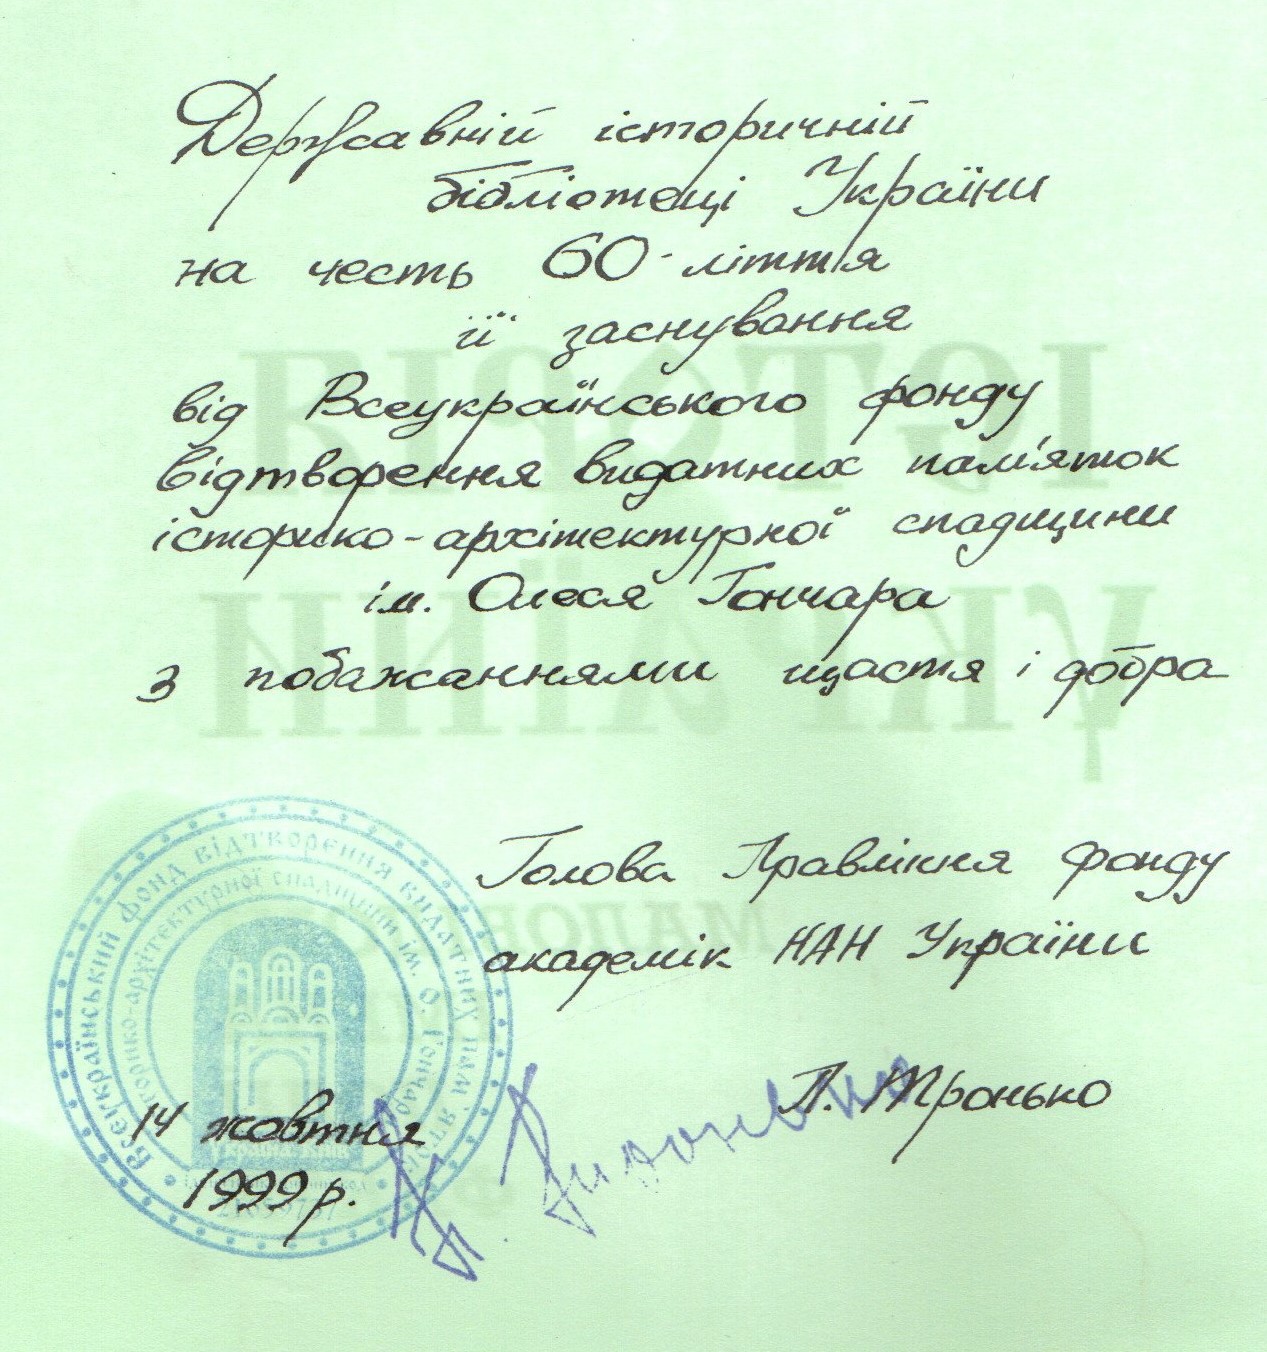 Державній історичній
бібліотеці України
на честь 60-ліття
її заснування
від Всеукраїнського фонду
відтворення видатних пам'яток
історико-архітектурної спадщини
ім. Олеся Гончара
з побажаннями щастя і добра
Голова Правління Фонду
академік НАН України
П. Тронько
14 жовтня
1999 р.
Всеукраїнський фонд відтворення видатних пам'яток
історико-архітектурної спадщини ім. О. Гончара
Україна. Київ